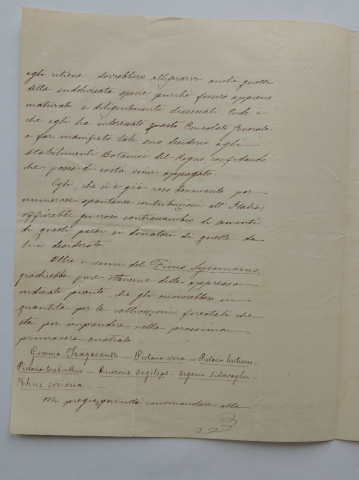 egli ritiene, dovrebbero allignarvi anche quelle
della suddivisata specie purchè fossero appieno
maturate e diligentemente disseccate. Ond'è
che egli ha interessato questo Consolato Generale
a far manifesto tale suo desiderio agli
stabilimenti Botanici del Regno confidando
che possa di costà venire appagato.
Egli, che si è già reso benemerito per
numerose spontanee contribuzioni all'Italia,
offrirebbe generoso contraccambio di sementi
di questi paesi ai donatori di quelle da
lui desiderate.
Oltre i semi del Ficus Sycomorus
gradirebbe pure ottenerne delle appresso
indicate piante, che gli occorrerebbero in
quantità per le coltivazioni forestali che
sta per imprendere nella prossima
primavera australe.
Gommia Tragacanth – Pistacia vera – Pistacia lentiscus –
Pistacia terebinthus – Quercus Aegilops – Argania Sideroxylon –
Rhus coriaria.
Mi pregio pertanto raccomandare alla